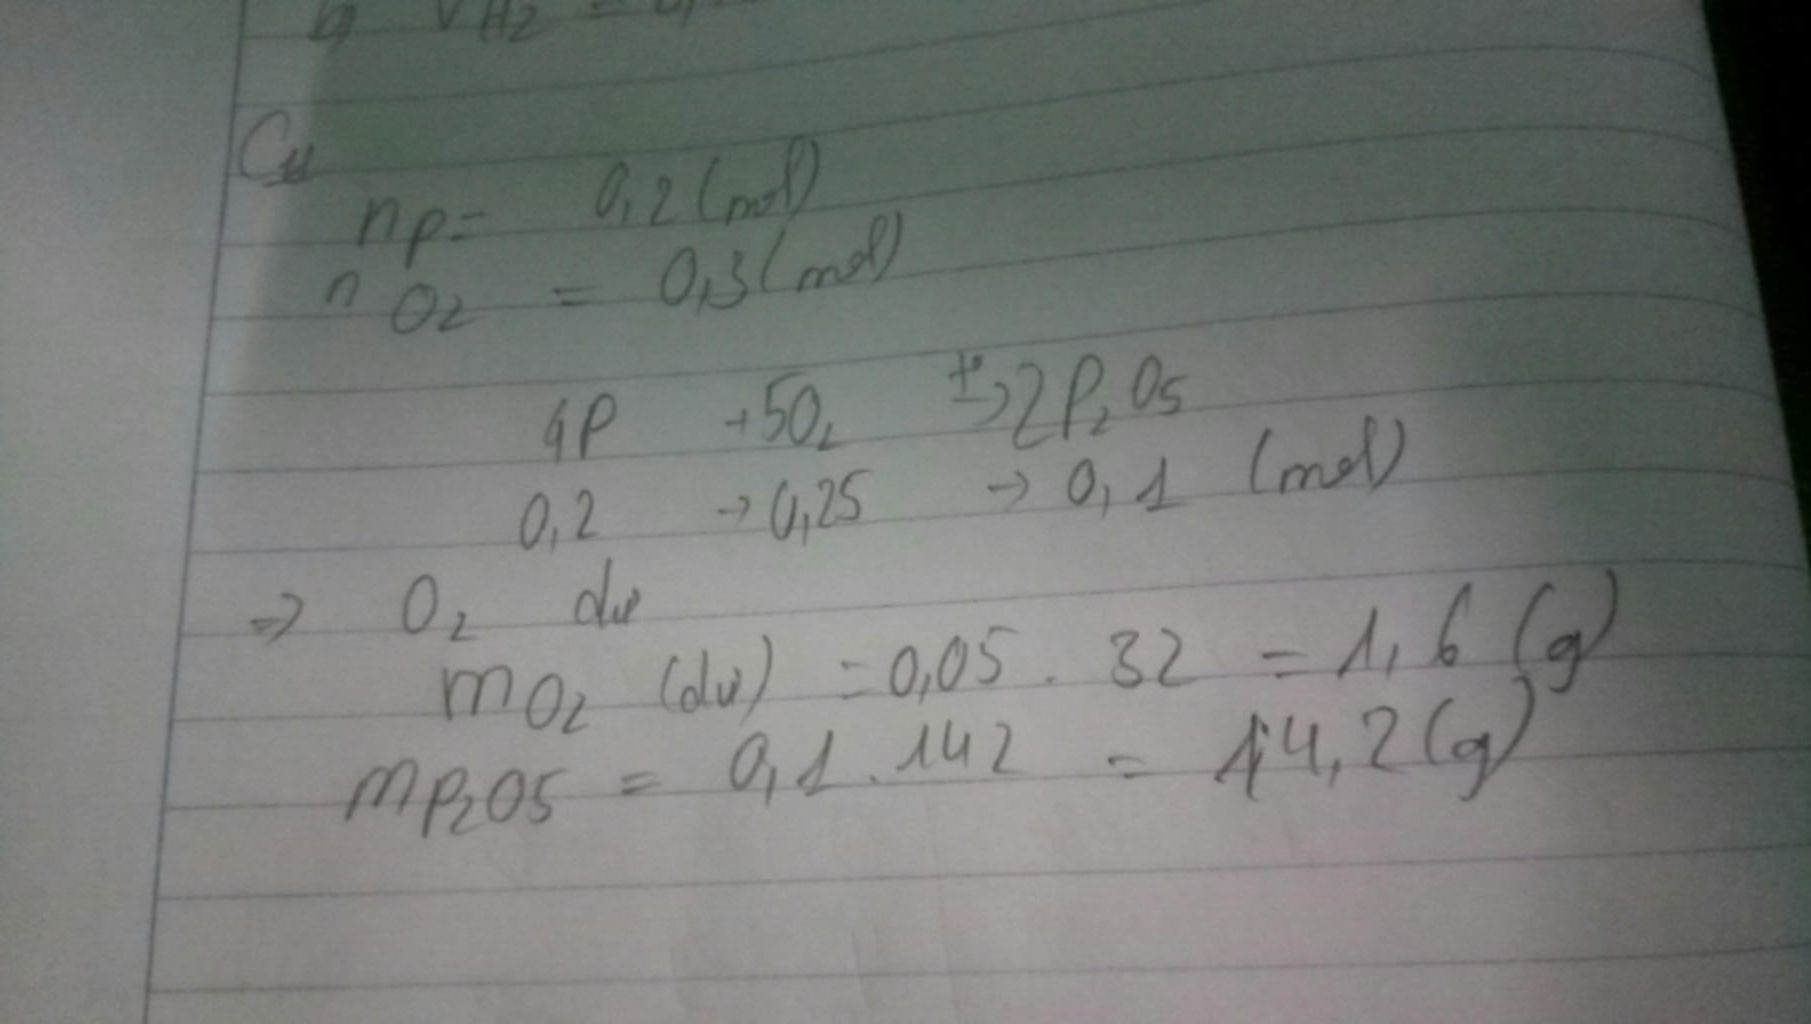 b, VH2 = 0,
C4
nP= 0,2 (mol)
nO2 = 0,3 (mol)
4P +5O2 t°→ 2P2O5
0,2 → 0,25 → 0,1 (mol)
=> O2 dư
mO2 (dư) = 0,05 . 32 = 1,6 (g)
mP2O5 = 0,1 . 142 = 14,2 (g)